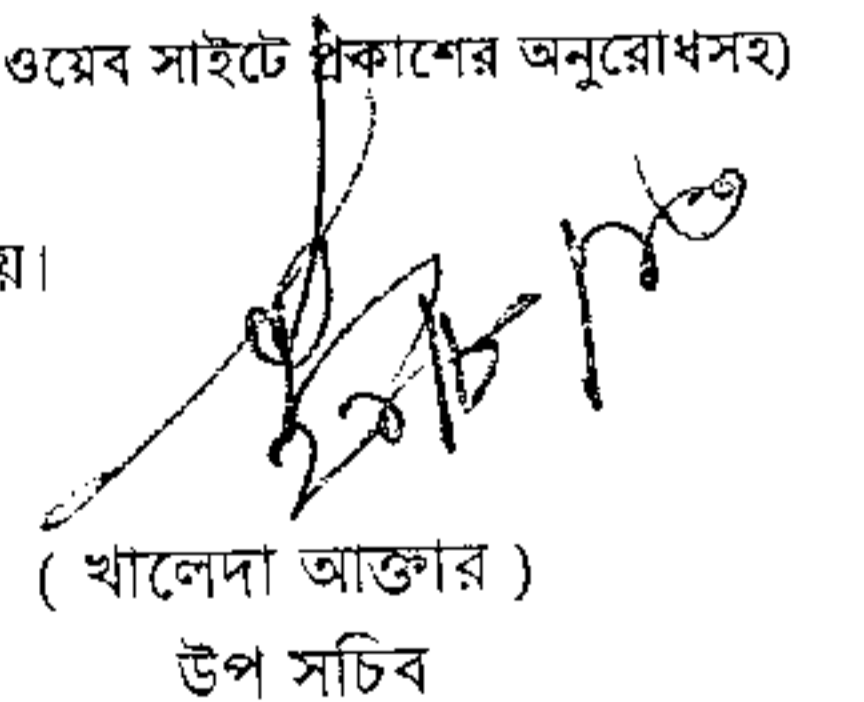 ওয়েব সাইটে প্রকাশের অনুরোধসহ)
য়।
( খালেদা আক্তার )
উপ সচিব